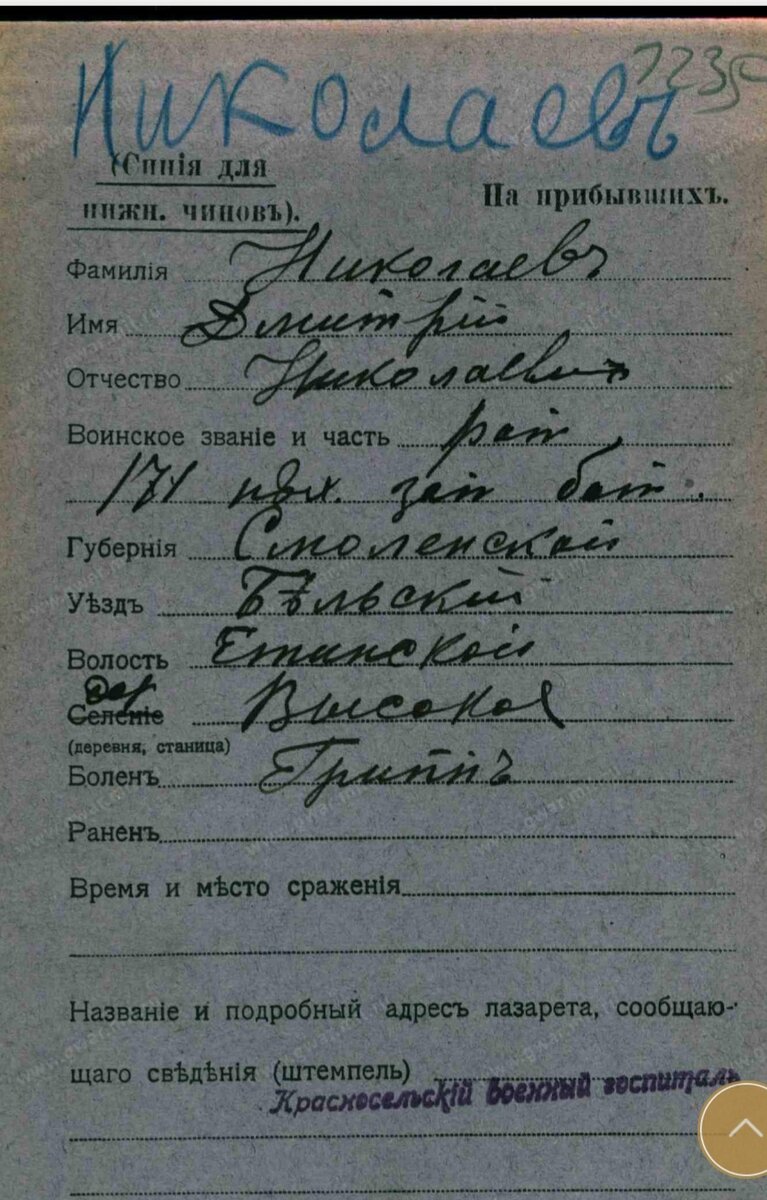 Николаевъ
1235
(Синія для
нижн. чиновъ).
На прибывшихъ.
Фамилія Николаевъ
Имя Дмитрій
Отчество Николаевич
Воинское званіе и часть рат.
171 пѣх. зап бат.
Губернія Смоленской
Уѣздъ Бѣльскій
Волость
Селеніе дер Высокое
(деревня, станица)
Боленъ Гриппъ
Раненъ
Время и мѣсто сраженія
Названіе и подробный адресъ лазарета, сообщаю-
щаго свѣдѣнія (штемпель)
Красносельскій военный госпиталь